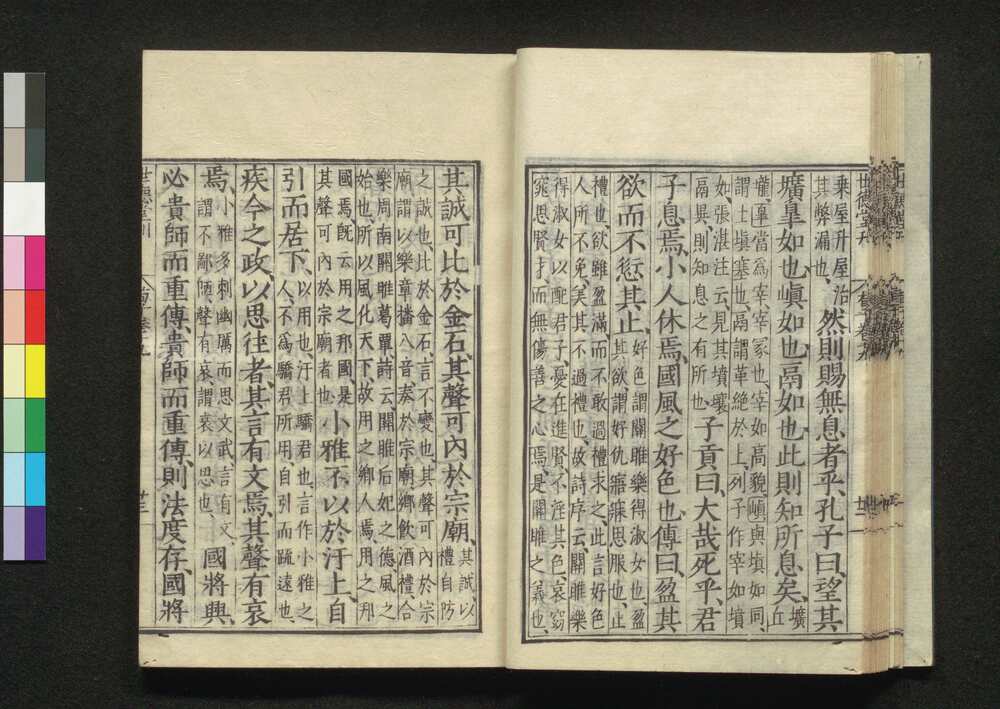 乘屋升屋治
其弊漏也
然則賜無息者乎、孔子曰、望其
壙、皐如也、嵮如也、鬲如也、此則知所息矣、
壙丘
壠、皐當爲宰、宰冢也、宰如高貌、嵮與塡如同、
謂土塡塞也、鬲謂革絶於上、列子作宰如墳
如、張湛注云、見其墳壤
鬲異、則知息之有所也
子貢曰、大哉死乎、君
子息焉、小人休焉、國風之好色也、傳曰、盈其
欲而不愆其止、
好色謂關雎樂得淑女也、盈
其欲、謂好仇、寤寐思服也、止
禮也、欲雖盈滿、而不敢過禮求之、此言好色
人所不免、美其不過禮也、故詩序云、關雎樂
得淑女以配君子、憂在進賢、不淫其色、哀窈
窕思賢才、而無傷善之心焉、是關雎之義也、
其誠可比於金石、其聲可內於宗廟、
其誠以
禮自防
之誠也、比於金石、言不變也、其聲可內於宗
廟、謂以樂章播八音奏於宗廟、鄉飲酒禮合
樂周南關雎葛覃、詩云關雎后妃之德、風之
始也、所以風化天下、故用之鄉人焉、用之邦
國焉、旣云用之邦國、是
其聲可內於宗廟者也
小雅不以於汙上、自
引而居下、
以用也、汙上驕君也、言作小雅之
人、不爲驕君所用、自引而疏遠也
疾今之政、以思往者、其言有文焉、其聲有哀
焉、
小雅多刺幽厲而思文武、言有文、
謂不鄙陋、聲有哀、謂哀以思也、
國將興、
必貴師而重傅、貴師而重傅、則法度存、國將